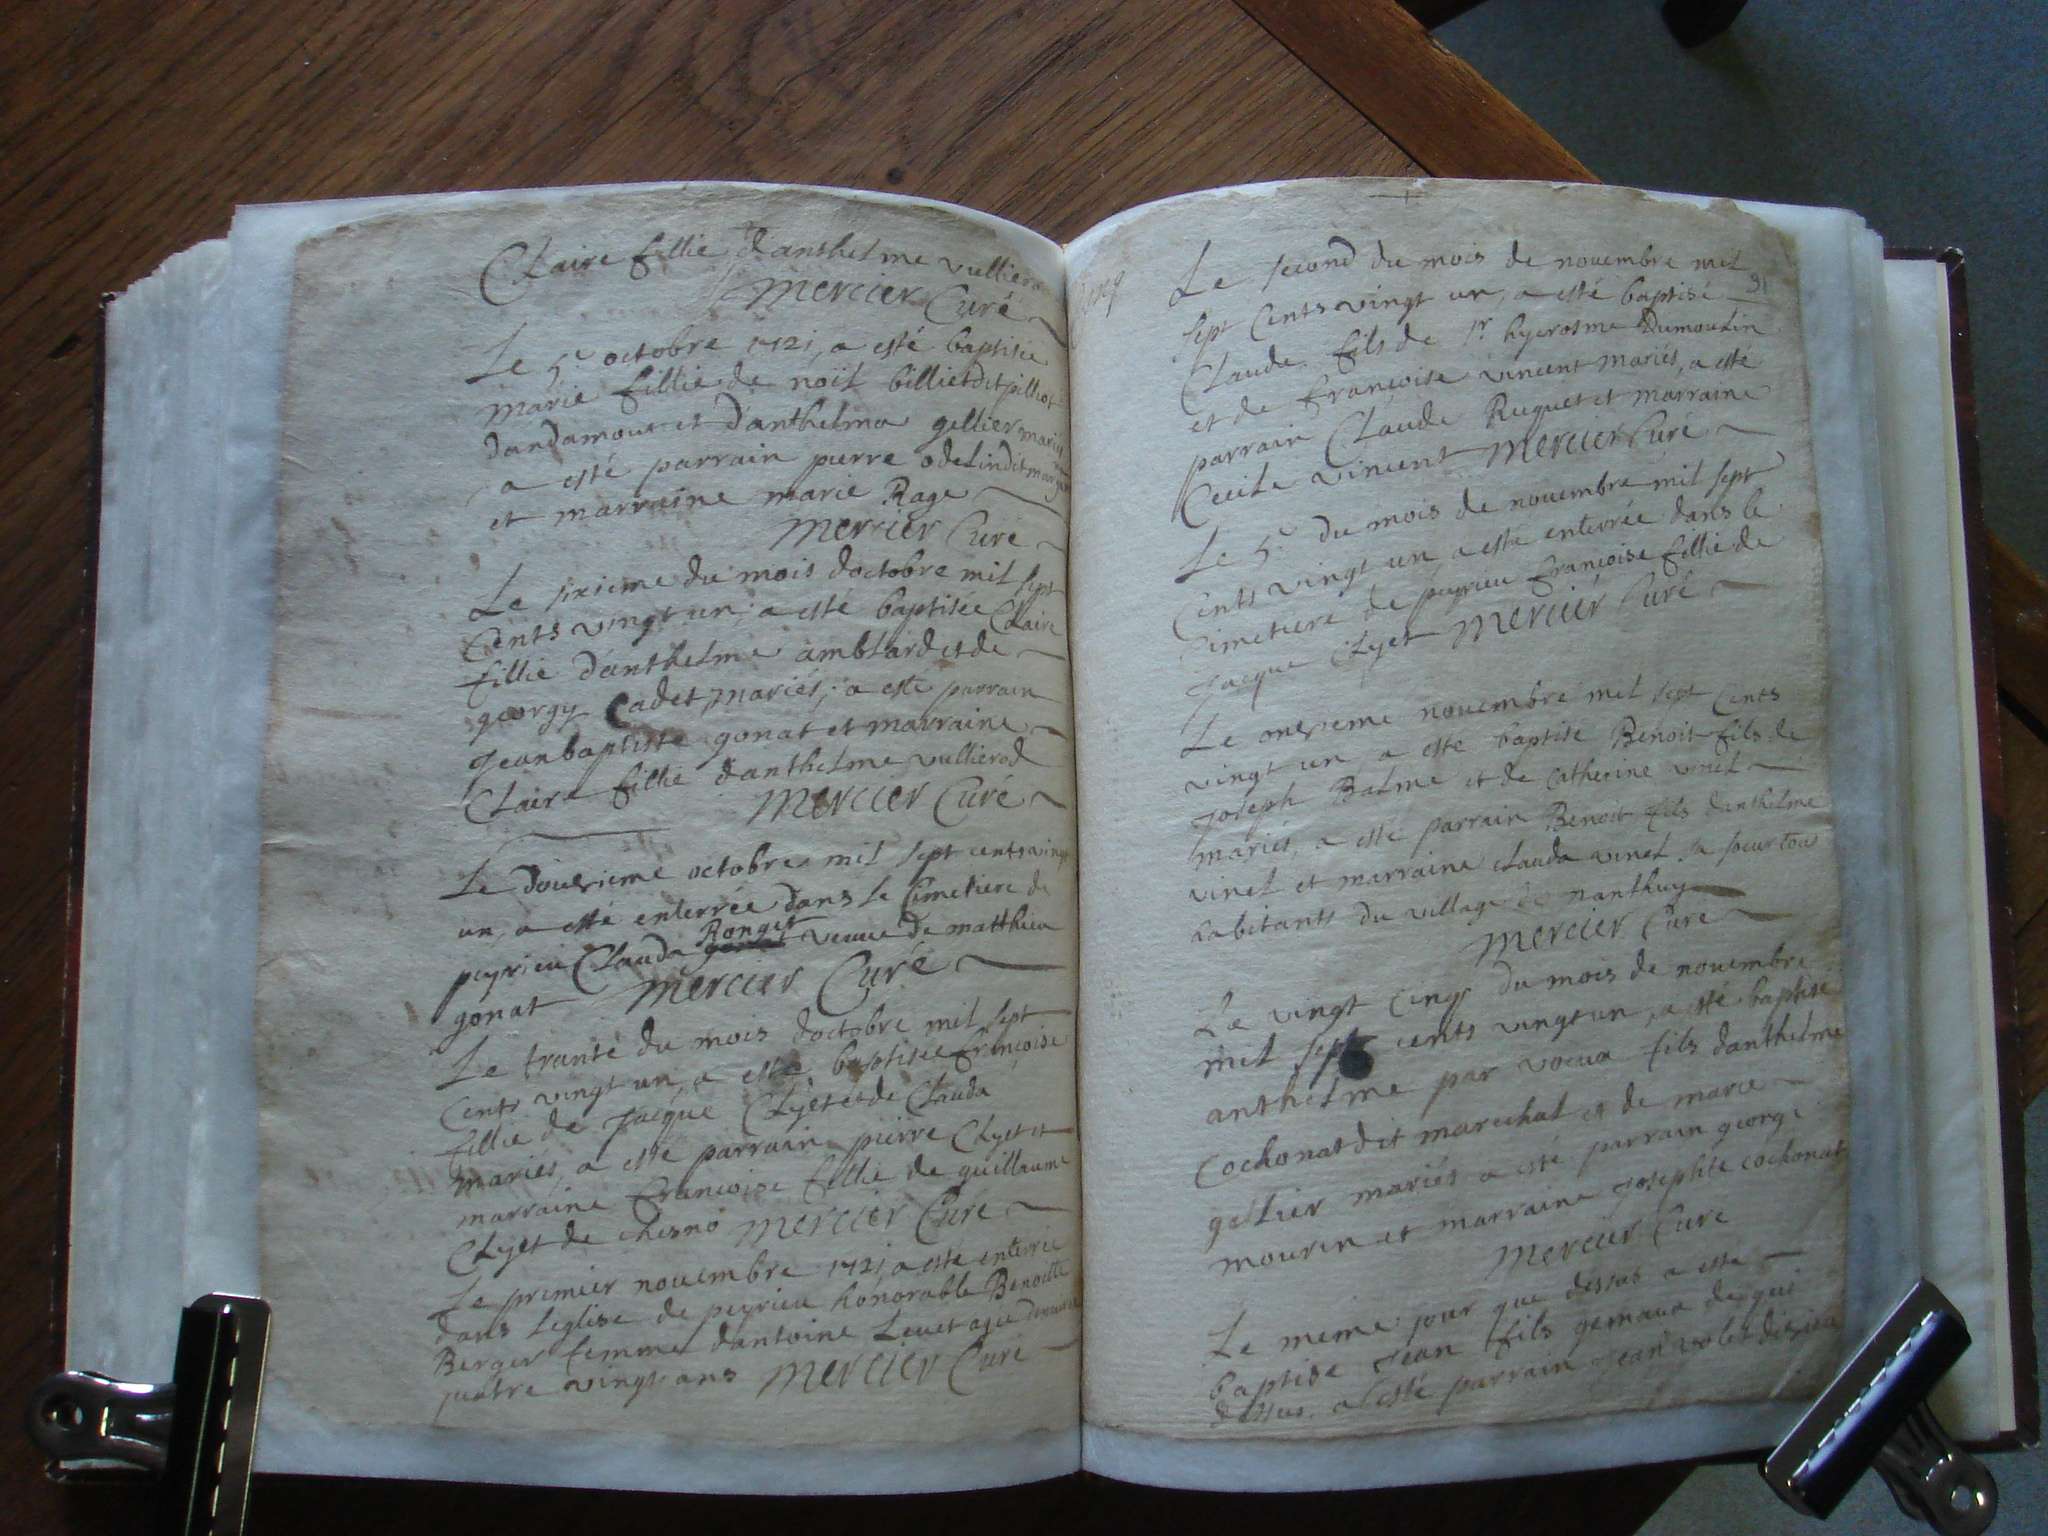 Claire fillie d'anthelme vullierod
Mercier Curé
Le 5e octobre 1721, a esté baptisée
marie fillie de noïel billiet dit pilliot
dandamour et d'anthelma gellier mariés
a esté parrain pierre odelin dit
et marraine marie Rage
Mercier Curé
Le sixieme du mois d'octobre mil sept
Cents vingt un, a esté baptisée Claire
fillie d'anthelme amblard et de
georgy Cadet, mariés, a esté parrain
Jean baptiste gonat et marraine
Claire fillie d'anthelme vullierod
Mercier Curé
Le douzieme octobre mil sept cents vingt
un, a esté enterrée dans le Cimetiere de
Ronger
peyrieu Clauda veuve de matthieu
gonat Mercier Curé
Le trante du mois d'octobre mil sept
Cents vingt un, a esté baptisée françoise
fillie de Jacque Clyet et de Clauda
mariés, a esté parrain pierre Clyet et
marraine francoise fillie de guillaume
Clyet de chesno Mercier Curé
Le premier novembre 1721 a esté enterrée
dans leglise de peyrieu honorable Benoitte
Berger femme d'antoine Levet agée denviron
quatre vingt ans Mercier Curé
Le second du mois de novembre mil
31
sept Cents vingt un, a esté baptisé
Claude fils de sr hyerosme Dumoulin
et de francoise vincent mariés, a esté
parrain Claude Ruquet et marraine
Cecile vincent Mercier Curé
Le 5e du mois de novembre mil sept
Cents vingt un, a esté enterrée dans le
Cimetiere de peyrieu francoise fillie de
Jacque Clyet Mercier Curé
Le onzieme novembre mil sept Cents
vingt un, a esté baptisé Benoit fils de
Joseph Balme et de Catherine vinel
mariés, a esté parrain Benoit fils d'anthelme
vinel et marraine clauda vinel sa soeur tous
habitants du village de nanthuy
Mercier Curé
Le vingt cinq du mois de novembre
mil sept cents vingt un, a esté baptisé
anthelme par voeux fils d'anthelme
Cochonat dit marechal et de marie
gellier mariés a esté parrain george
mourin et marraine Josephte cochonat
Mercier Curé
Le meme jour que dessus a esté
baptisé Jean fils gemaux de qui
dessus, a esté parrain Jean volet